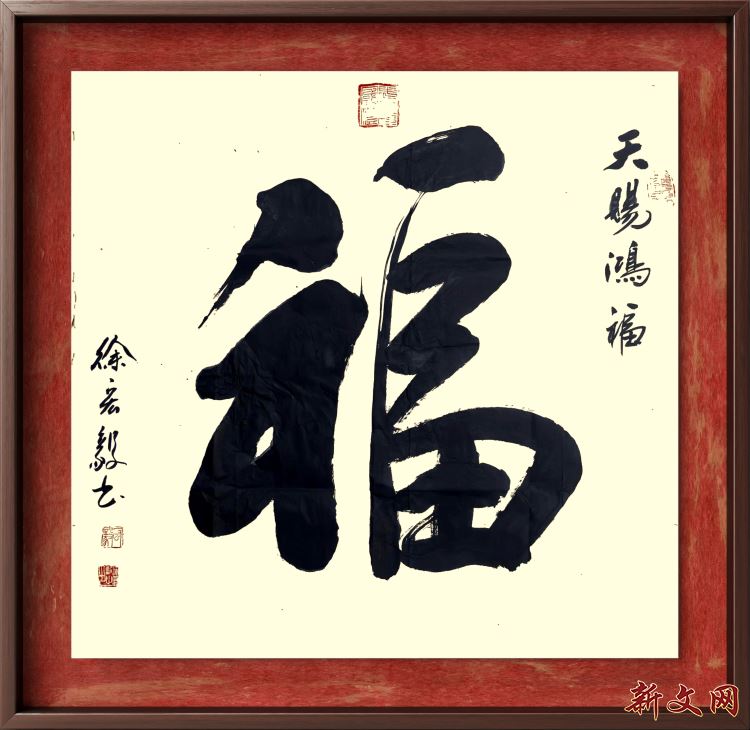 天赐鸿福
福
徐宏毅书
新文网